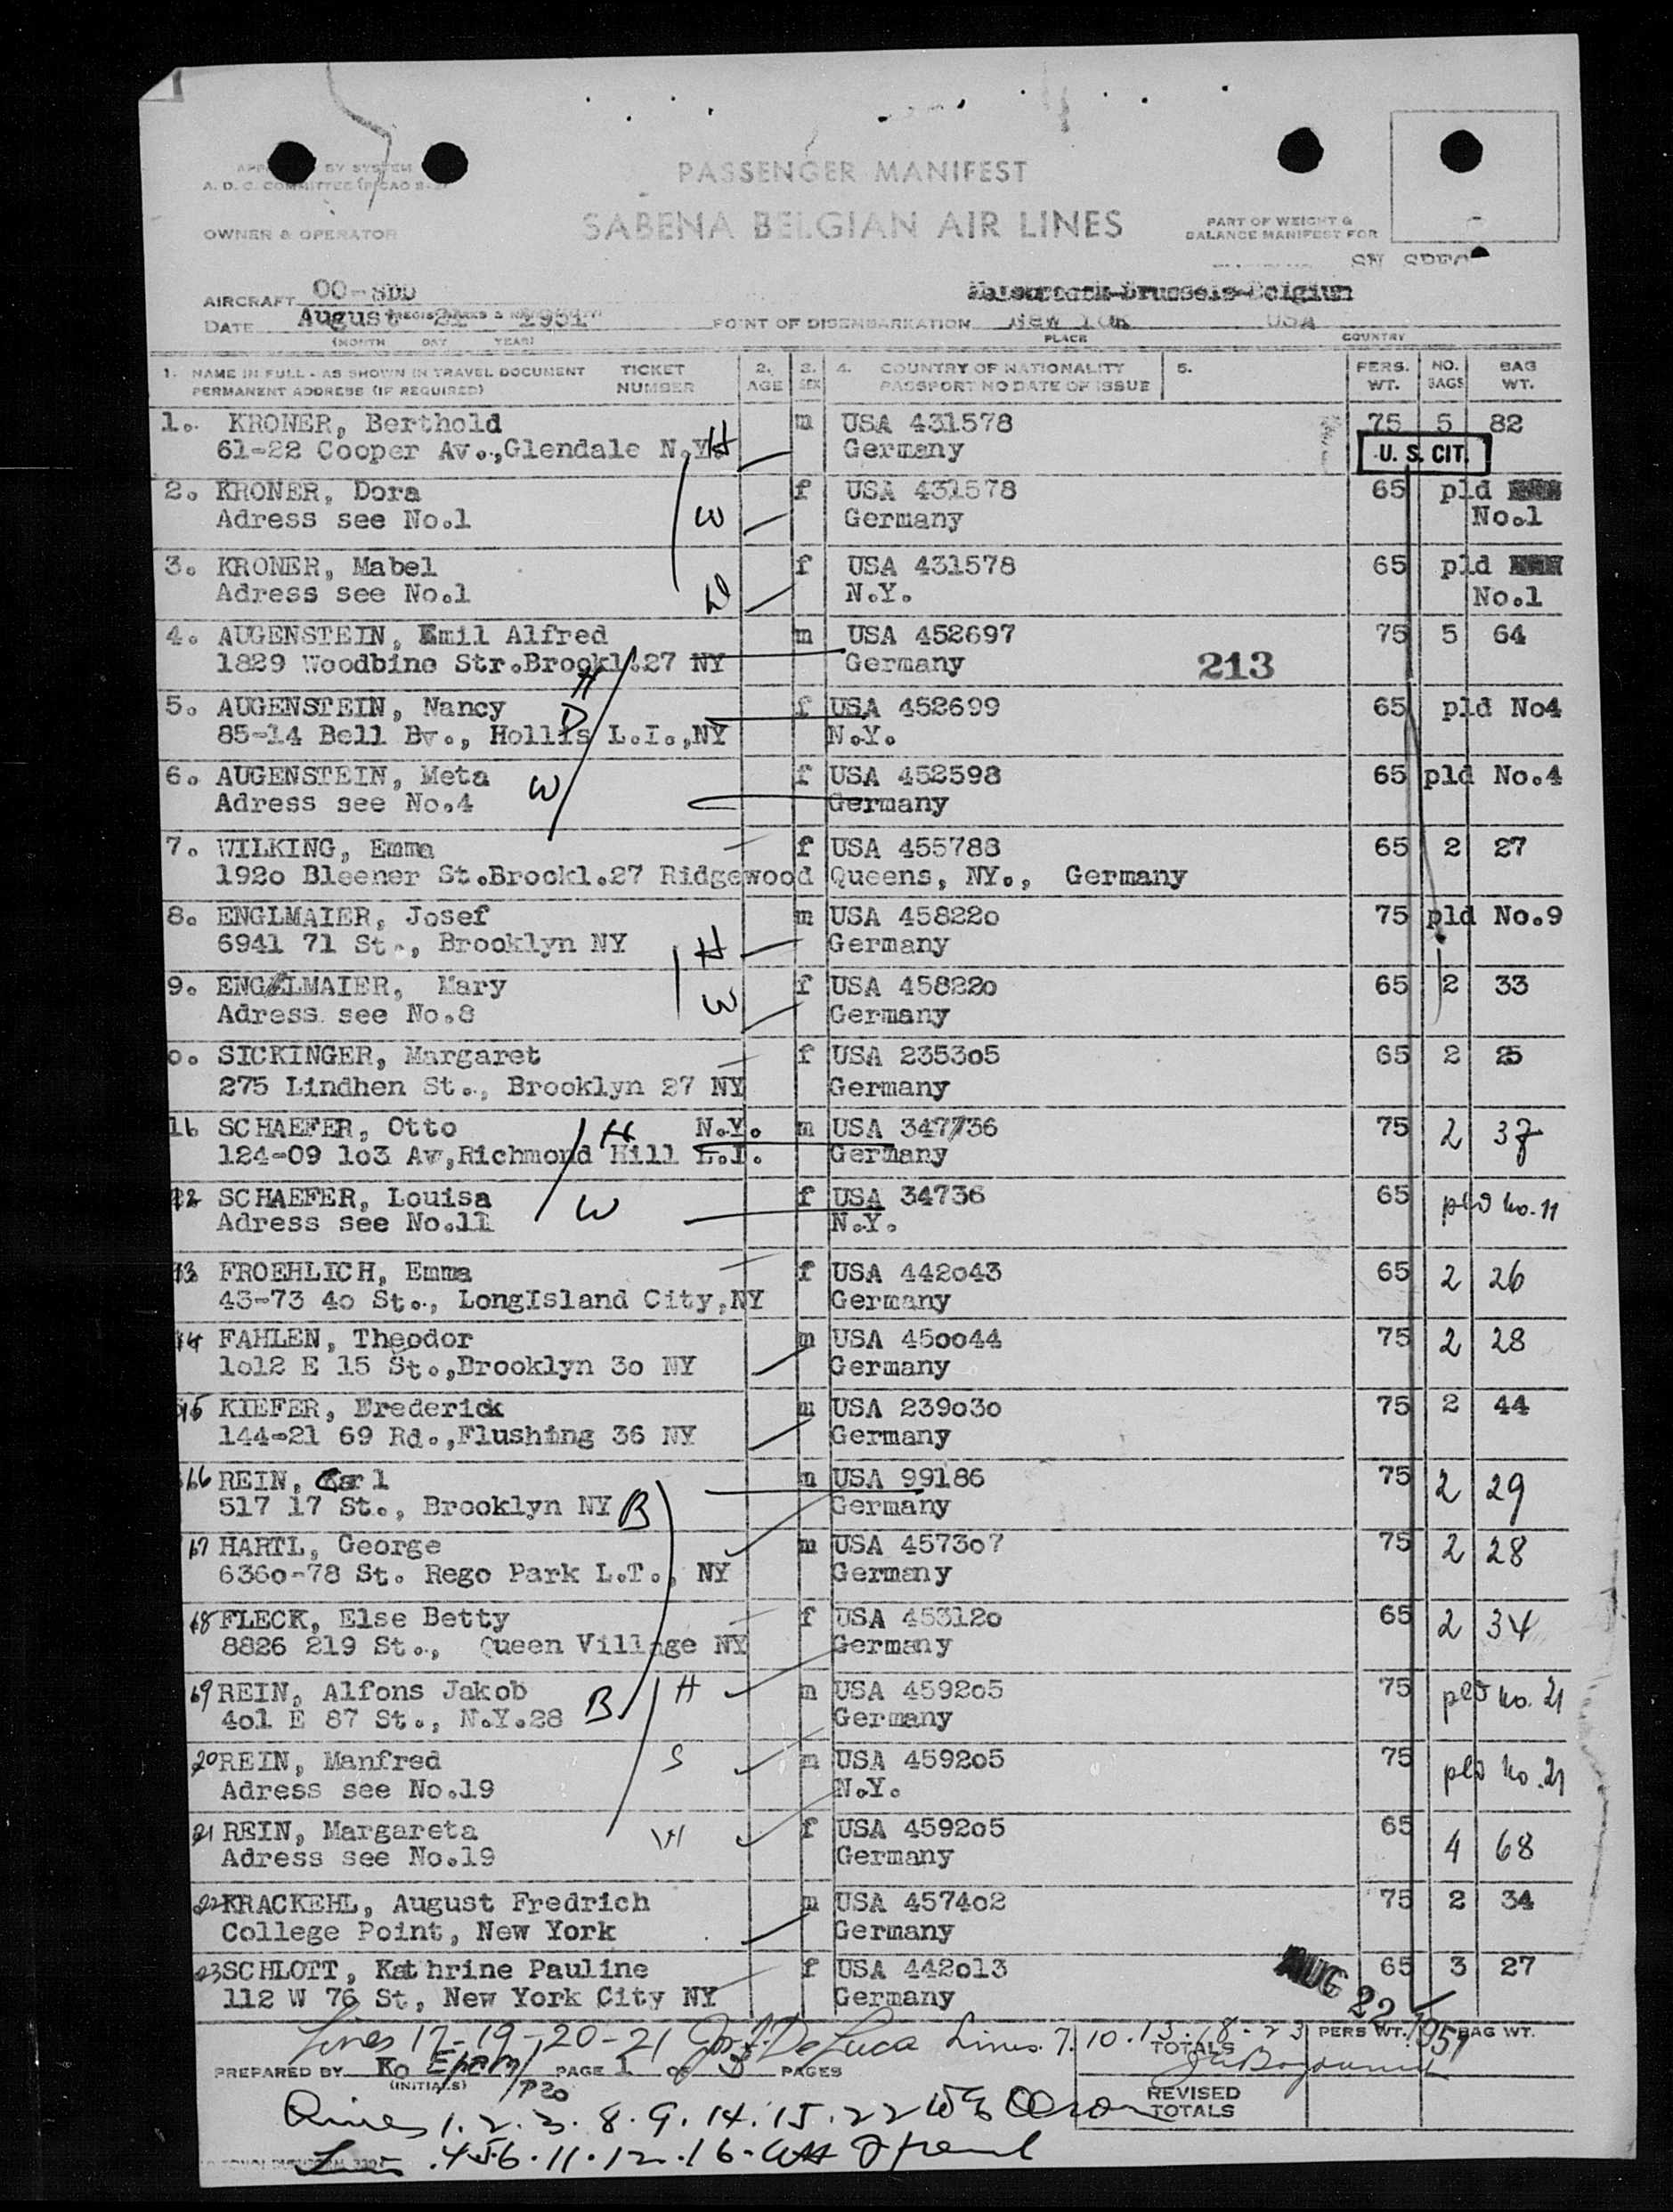 PASSENGER MANIFEST
SABENA BELGIAN AIR LINES
OWNER & OPERATOR
PART OF WEIGHT &
BALANCE MANIFEST FOR
AIRCRAFT OO-SDD
DATE August 21 1951
(MONTH DAY YEAR)
POINT OF DISEMBARKATION New York USA
PLACE COUNTRY
1. NAME IN FULL - AS SHOWN IN TRAVEL DOCUMENT TICKET 2. 3. 4. COUNTRY OF NATIONALITY 5. PERS. NO. BAG
PERMANENT ADDRESS (IF REQUIRED) NUMBER AGE SEX PASSPORT NO DATE OF ISSUE WT. BAGS WT.
1. KRONER, Berthold m USA 431578 75 5 82
61-22 Cooper Av.,Glendale N.Y. H Germany
U. S. CIT.
2. KRONER, Dora f USA 431578 65 pld
Adress see No.1 W Germany No.1
3. KRONER, Mabel f USA 431578 65 pld
Adress see No.1 D N.Y. No.1
4. AUGENSTEIN, Emil Alfred m USA 452697 75 5 64
1829 Woodbine Str.Brookl.27 NY Germany 213
H
5. AUGENSTEIN, Nancy D f USA 452699 65 pld No4
85-14 Bell Bv., Hollis L.I.,NY N.Y.
6. AUGENSTEIN, Meta W f USA 452598 65 pld No.4
Adress see No.4 Germany
7. WILKING, Emma f USA 455788 65 2 27
192o Bleener St.Brockl.27 Ridgewood Queens, NY., Germany
8. ENGLMAIER, Josef m USA 45822o 75 pld No.9
6941 71 St., Brooklyn NY H Germany
9. ENGELMAIER, Mary f USA 45822o 65 2 33
Adress see No.8 W Germany
o. SICKINGER, Margaret f USA 2353o5 65 2 25
275 Lindhen St., Brooklyn 27 NY Germany
11. SCHAEFER, Otto H N.Y. m USA 347736 75 2 37
124-09 1o3 Av,Richmond Hill L.I. Germany
12 SCHAEFER, Louisa W f USA 34736 65 pld No.11
Adress see No.11 N.Y.
13 FROEHLICH, Emma f USA 442o43 65 2 26
43-73 4o St., LongIsland City,NY Germany
14 FAHLEN, Theodor m USA 45oo44 75 2 28
1o12 E 15 St.,Brooklyn 3o NY Germany
15 KIEFER, Frederick m USA 239o3o 75 2 44
144-21 69 Rd.,Flushing 36 NY Germany
16 REIN, Carl m USA 99186 75 2 29
517 17 St., Brooklyn NY B Germany
17 HARTL, George m USA 4573o7 75 2 28
636o-78 St. Rego Park L.T., NY Germany
18 FLECK, Else Betty f USA 45312o 65 2 34
8826 219 St., Queen Village NY Germany
19 REIN, Alfons Jakob H m USA 4592o5 75 pld No. 21
4o1 E 87 St., N.Y.28 B Germany
20 REIN, Manfred S m USA 4592o5 75 pld No. 21
Adress see No.19 N.Y.
21 REIN, Margareta W f USA 4592o5 65 4 68
Adress see No.19 Germany
22 KRACKEHL, August Fredrich m USA 4574o2 75 2 34
College Point, New York Germany
23 SCHLOTT, Kathrine Pauline f USA 442o13 65 3 27
112 W 76 St, New York City NY Germany
AUG 22 1951
Lines 17-19-20-21 Jos. De Luca Lines 7. 10. 13. 18-23
TOTALS PERS WT. BAG WT.
PREPARED BY Ko PAGE 1 OF 3 PAGES
(INITIALS)
REVISED
TOTALS
Lines 1. 2. 3. 8. 9. 14. 15. 22
Lines 4 5 6. 11. 12. 16.